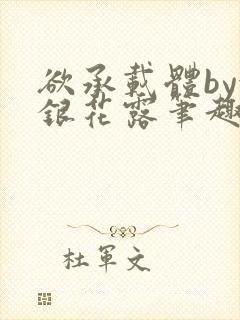 欲承載體by
銀花露筆趣
杜軍文